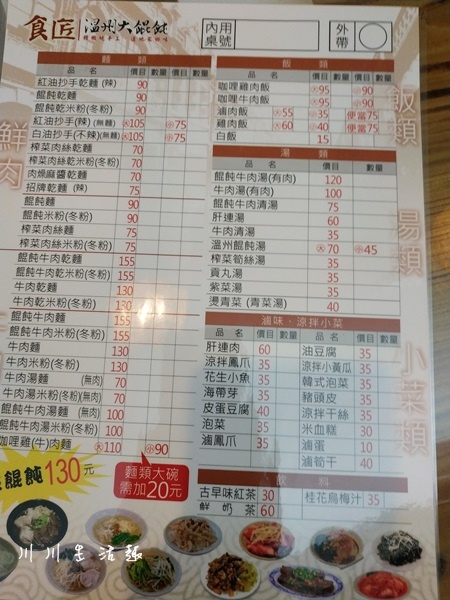 食匠 溫州大餛飩
內用桌號
外帶
麵 類
品 名 價目 數量 價目 數量
紅油抄手乾麵 (辣) 90
餛飩乾麵 90
餛飩乾米粉(冬粉) 90
紅油抄手(辣) (無麵) 大105 小75
白油抄手(不辣)(無麵) 大105 小75
榨菜肉絲乾麵 70
榨菜肉絲乾米粉(冬粉) 70
肉燥麻醬乾麵 70
招牌乾麵 (辣) 75
餛飩麵 90
餛飩米粉(冬粉) 90
榨菜肉絲麵 75
榨菜肉絲米粉(冬粉) 75
餛飩牛肉乾麵 155
餛飩牛肉乾米粉(冬粉) 155
牛肉乾麵 130
牛肉乾米粉(冬粉) 130
餛飩牛肉麵 155
餛飩牛肉米粉(冬粉) 155
牛肉麵 130
牛肉米粉(冬粉) 130
牛肉湯麵 (無肉) 70
牛肉湯米粉(冬粉)(無肉) 70
餛飩牛肉湯麵 (無肉) 100
餛飩牛肉湯米粉(冬粉) 100
咖哩雞(牛)肉麵 大110 小90
餛飩130元
麵類大碗
需加20元
飯 類
品 名 價目 數量 價目 數量
咖哩雞肉飯 大95 小90
咖哩牛肉飯 大95 小90
滷肉飯 大55 小35 便當75
雞肉飯 大60 小40 便當75
白飯 15
湯 類
品 名 價目 數量
餛飩牛肉湯(有肉) 120
牛肉湯(有肉) 100
餛飩牛肉清湯 75
肝連湯 60
牛肉清湯 35
溫州餛飩湯 大70 小45
榨菜筍絲湯 35
貢丸湯 35
紫菜湯 35
燙青菜 (青菜湯) 40
滷味．涼拌小菜
品 名 價目 數量 品 名 價目 數量
肝連肉 60 油豆腐 35
涼拌鳳爪 35 涼拌小黃瓜 35
花生小魚 35 韓式泡菜 35
海帶芽 35 豬頭皮 35
皮蛋豆腐 40 涼拌干絲 35
泡菜 35 米血糕 30
滷鳳爪 35 滷蛋 10
滷筍干 40
飲 料
古早味紅茶 30 桂花烏梅汁 35
鮮奶茶 60
鮮肉
飯類
湯類
小菜類
川川生活趣